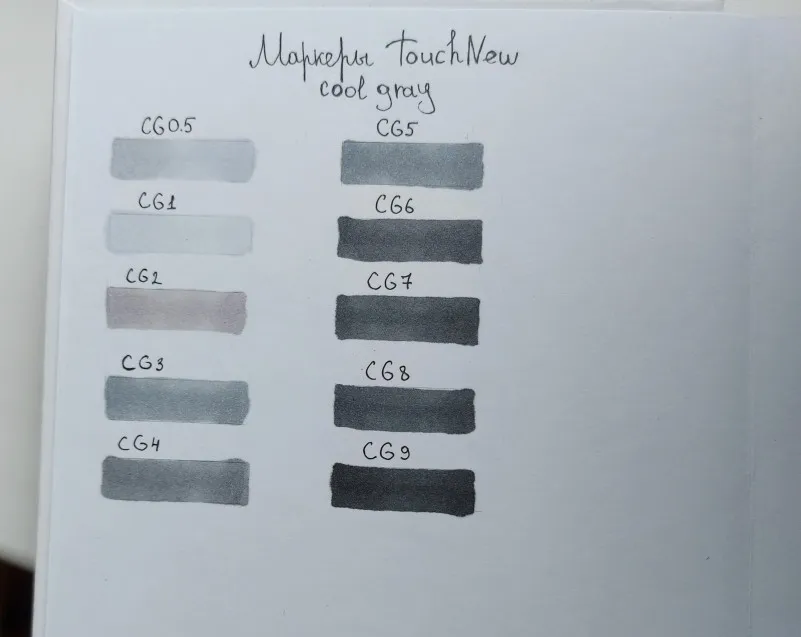 Маркеры TouchNew
cool gray
CG0.5
CG1
CG2
CG3
CG4
CG5
CG6
CG7
CG8
CG9